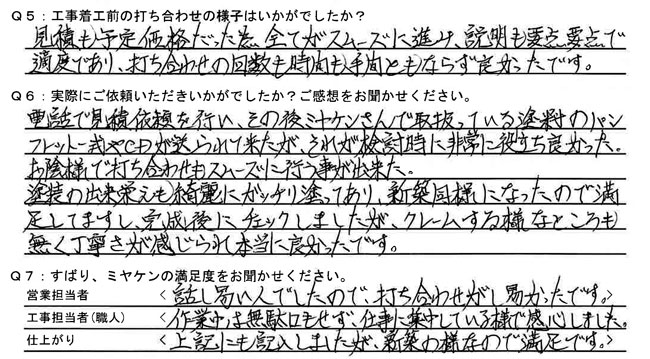 Q5:工事着工前の打ち合わせの様子はいかがでしたか?
見積も予定価格だった為、全てがスムーズに進み、説明も要点要点で
適度であり、打ち合わせの回数も時間も手間ともならず良かったです。
Q6:実際にご依頼いただきいかがでしたか?ご感想をお聞かせください。
電話で見積依頼を行い、その後ミヤケンさんで取扱っている塗料のパン
フレット一式やCDが送られて来たが、それが検討時に非常に役立ち良かった。
お陰様で打ち合わせもスムーズに行う事が出来た。
塗装の出来栄えも綺麗にガッチリ塗ってあり、新築同様になったので満
足してますし、完成後にチェックしましたが、クレームする様なところも
無く丁寧さが感じられ本当に良かったです。
Q7:ずばり、ミヤケンの満足度をお聞かせください。
営業担当者 <話し易い人でしたので、打ち合わせがし易かったです。>
工事担当者(職人) <作業中は無駄口もせず、仕事に集中している様で感心しました。>
仕上がり <上記にも記入しましたが、新築の様なので満足です。>